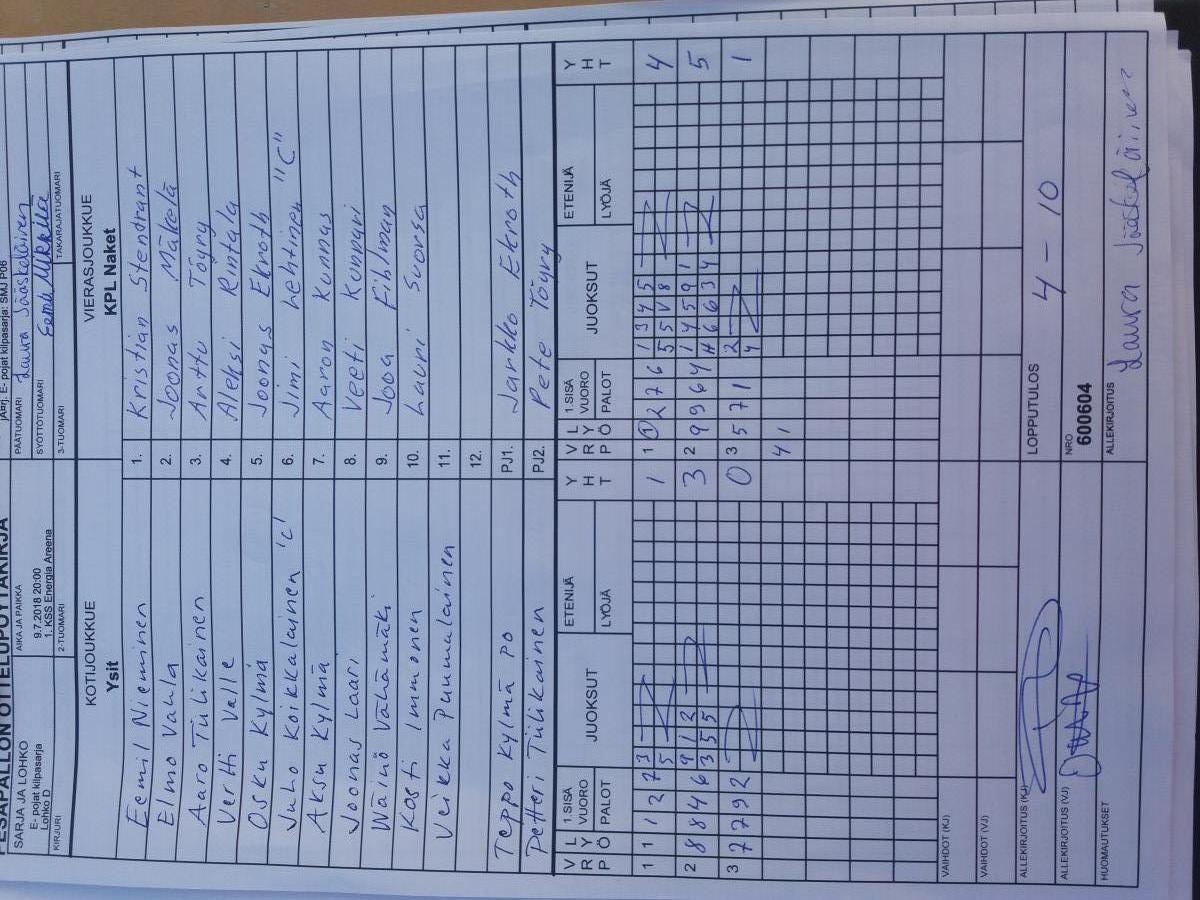 PESÄPALLON OTTELUPÖYTÄKIRJA
SARJA JA LOHKO
E- pojat kilpasarja
Lohko D
KIRJURI
AIKA JA PAIKKA
9.7.2018 20:00
1. KSS Energia Areena
2-TUOMARI
E- pojat kilpasarja: SMJ P06
PÄÄTUOMARI Laura Jääskeläinen
SYÖTTÖTUOMARI Eemil Mikkilä
3-TUOMARI
TAKARAJATUOMARI
KOTIJOUKKUE
Ysit
VIERASJOUKKUE
KPL Naket
Eemil Nieminen 1. Kristian Stendrant
Elmo Vanla 2. Joonas Mäkelä
Aaro Tiilikainen 3. Arttu Töyry
Vertti Valle 4. Aleksi Rintala
Osku Kylmä 5. Joonas Ekroth
Juho Koikkalainen 'C' 6. Jimi Lehtinen "C"
Aksu Kylmä 7. Aaron Kunnas
Joonas Laari 8. Veeti Konnari
Wäinö Vähämäki 9. Jooa Fihlman
Kosti Immonen 10. Lauri Suorsa
Veikka Punmulainen 11.
12.
Teppo Kylmä PO PJ1. Jarkko Ekroth
Petteri Tiilikainen PJ2. Pete Töyry
V R P L Y Ö 1.SISÄ VUORO PALOT JUOKSUT ETENIJÄ LYÖJÄ Y H T
V R P L Y Ö 1.SISÄ VUORO PALOT JUOKSUT ETENIJÄ LYÖJÄ Y H T
1 1 1 2 7 3 1 1 1 2 7 6 1 3 4 5 4
5 5 5 V 8
2 8 8 4 6 9 1 2 3 2 9 9 6 4 1 4 5 9 1 5
3 5 5 H 6 6 3 4
3 7 7 9 2 0 3 5 7 1 2 1
4
4 1
VAIHDOT (KJ)
VAIHDOT (VJ)
ALLEKIRJOITUS (KJ)
LOPPUTULOS 4 - 10
ALLEKIRJOITUS (VJ)
NRO
600604
HUOMAUTUKSET
ALLEKIRJOITUS Laura Jääskeläinen